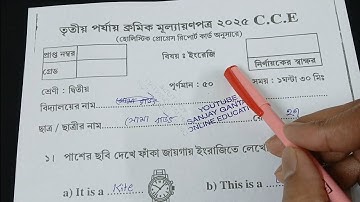 তৃতীয় পর্যায় ক্রমিক মূল্যায়নপত্র ২০২৫ C.C.E
(হোলিস্টিক প্রোগ্রেস রিপোর্ট কার্ড অনুসারে)
প্রাপ্ত নম্বর
বিষয় : ইংরেজি
গ্রেড
নির্ণায়কের স্বাক্ষর
শ্রেণী : দ্বিতীয়
পূর্ণমান : ৫০
সময় : ১ঘন্টা ৩০ মিঃ
বিদ্যালয়ের নাম
YOUTUBE
ছাত্র / ছাত্রীর নাম
SANJAY GANTA
ONLINE EDUCATI
১। পাশের ছবি দেখে ফাঁকা জায়গায় ইংরাজিতে লেখো
a) It is a Kite
b) This is a